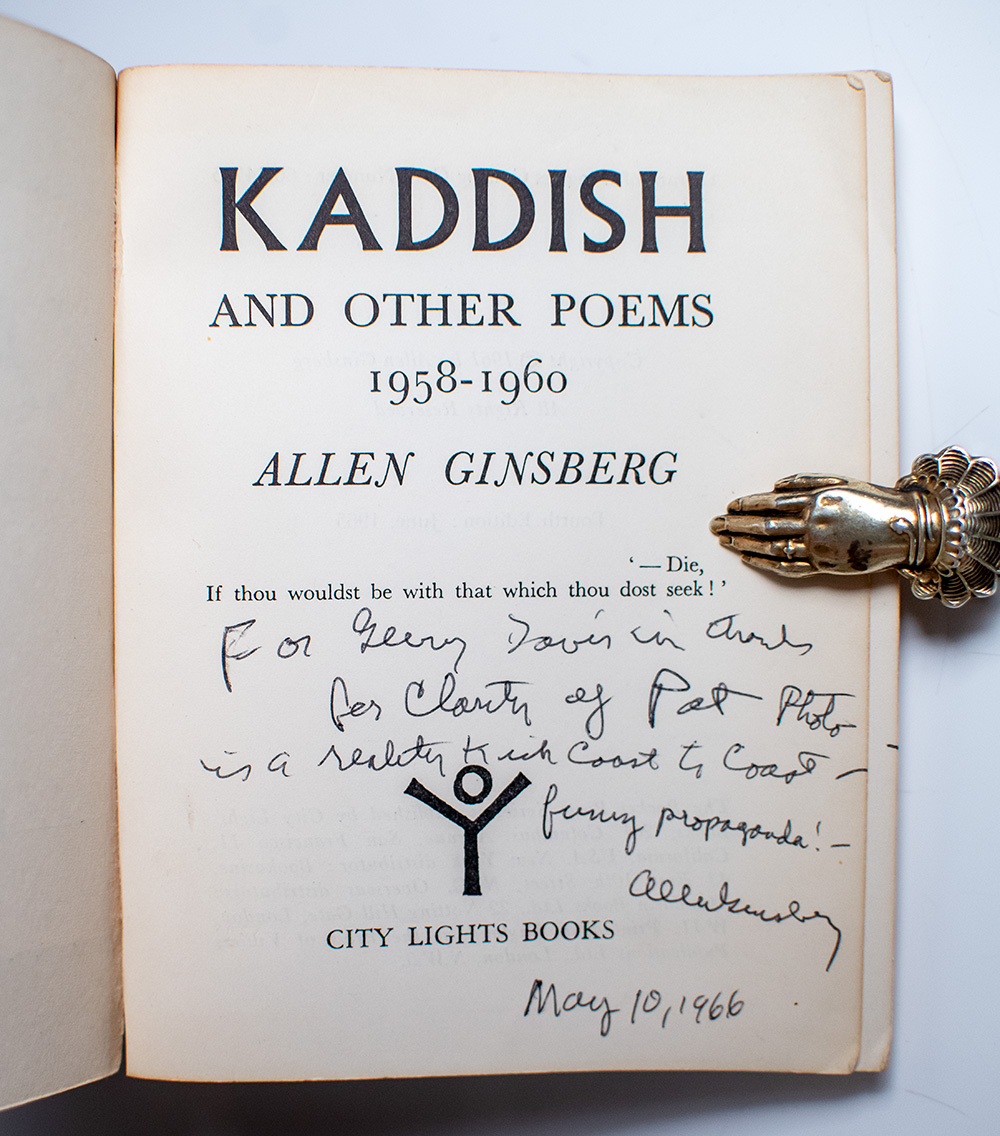 KADDISH
AND OTHER POEMS
1958-1960
ALLEN GINSBERG
' — Die,
If thou wouldst be with that which thou dost seek! '
For Davis in thanks
for Clarity of Pot Photo
is a reality Kick Coast to Coast —
funny propaganda! —
Allen Ginsberg
CITY LIGHTS BOOKS
May 10, 1966